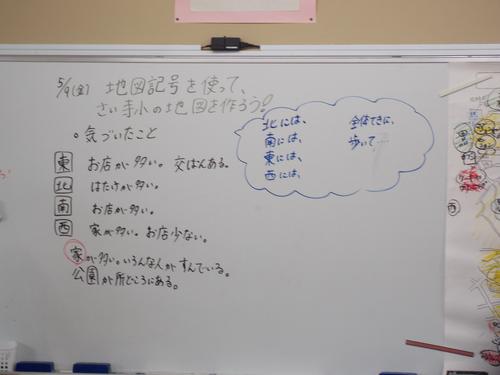 5/9(金) 地図記号を使って、
さい寺小の地図を作ろう!
○気づいたこと
東 お店が多い。交ばんある。
北 はたけが多い。
南 お店が多い。
西 家が多い。お店少ない。
家が多い。いろんな人がすんでいる。
公園が所どころにある。
北には、
南には、
東には、
西には、
全体てきに、
歩いて
西